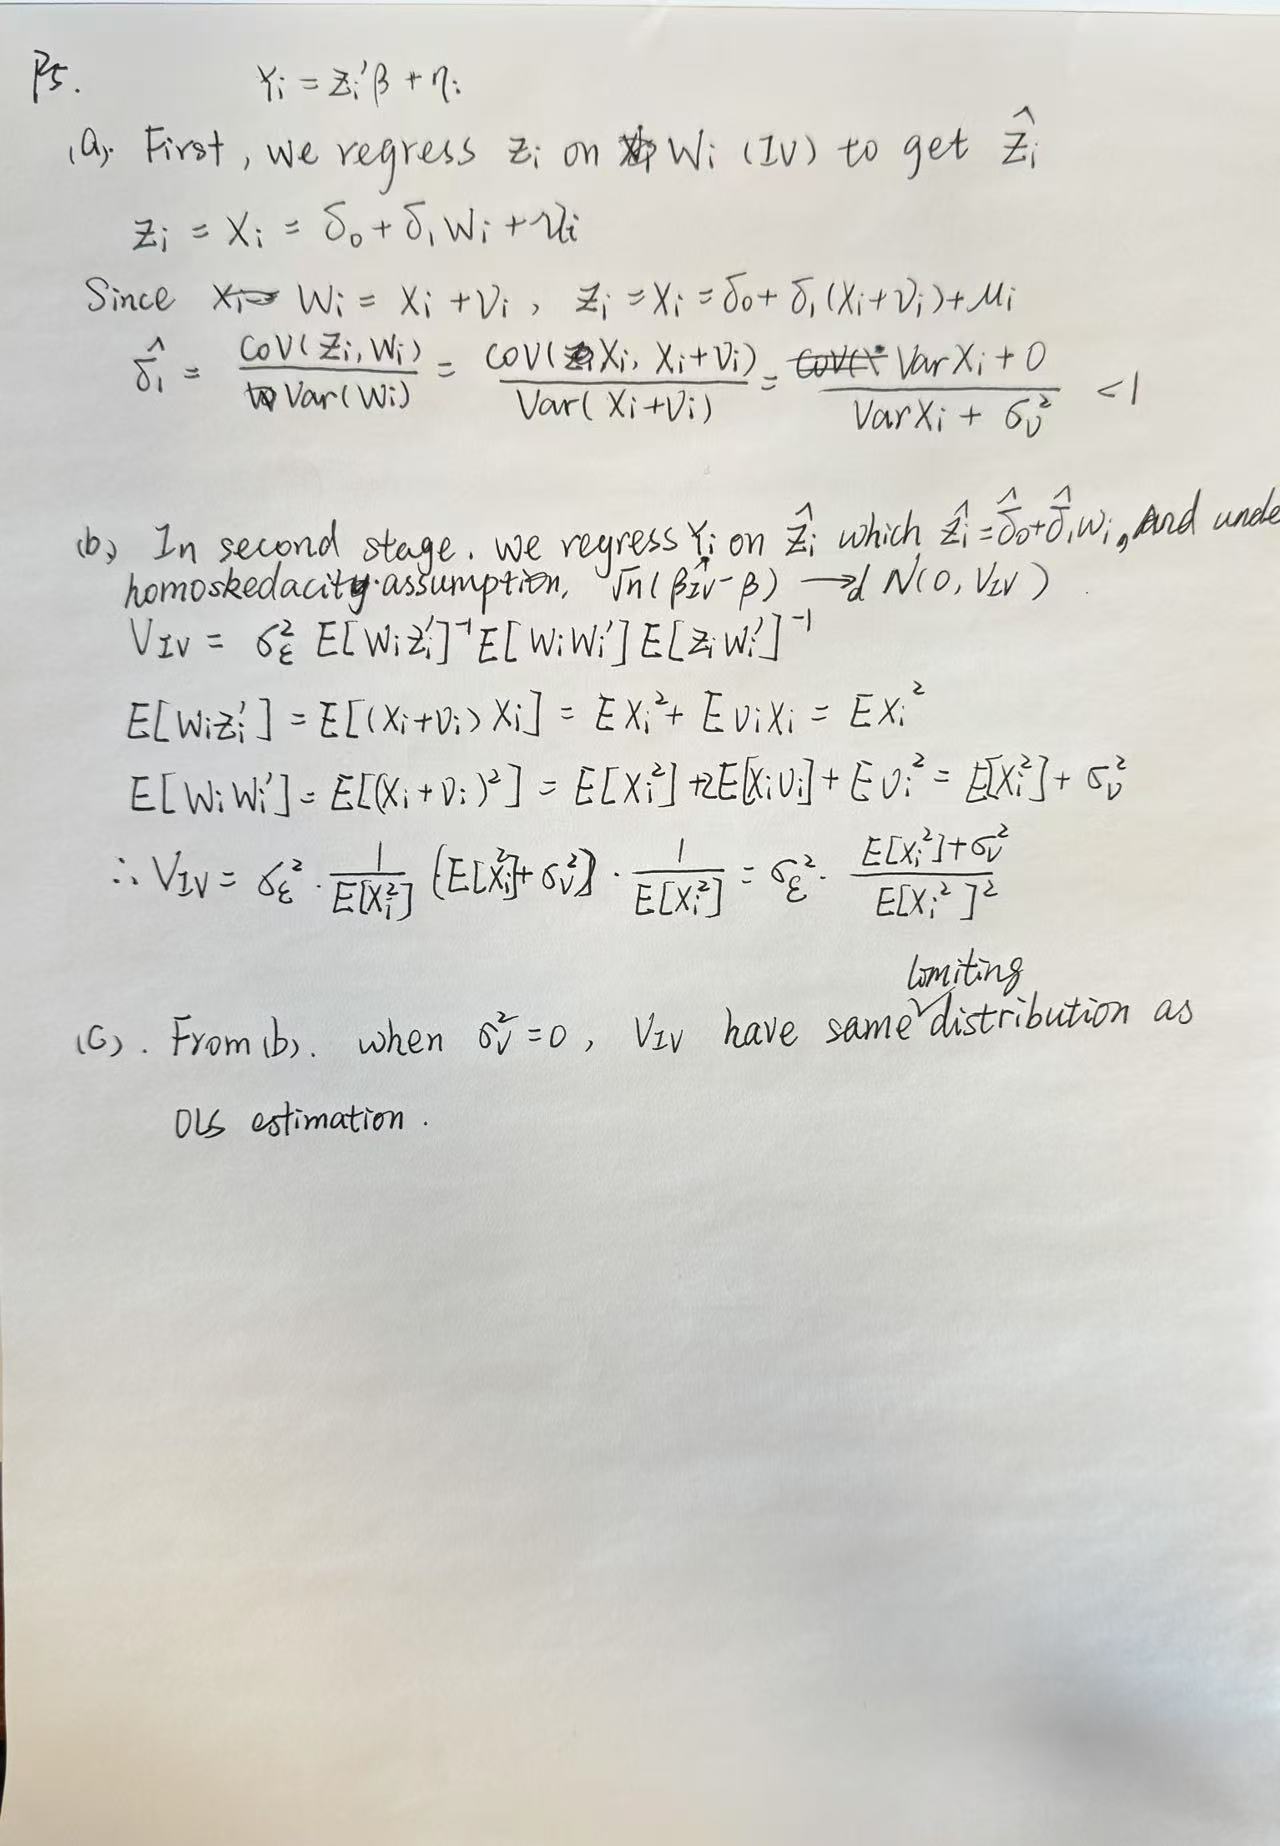 P5. Yi = Zi'β + ηi
(a). First, we regress zi on Wi (IV) to get Ẑi
Zi = Xi = δ0 + δ1 Wi + ui
Since Wi = Xi + νi, Zi = Xi = δ0 + δ1(Xi+νi) + μi
δ̂1 = COV(Zi, Wi) / Var(Wi) = COV(Xi, Xi+νi) / Var(Xi+νi) = VarXi + 0 / VarXi + σν² < 1
(b) In second stage. we regress Yi on Ẑi which Ẑi = δ̂0 + δ̂1wi, And unde
homoskedacity assumption, √n(β̂IV - β) →d N(0, VIV)
VIV = σε² E[WiZi']⁻¹ E[WiWi'] E[ZiWi']⁻¹
E[WiZi'] = E[(Xi+νi)Xi] = EXi² + EνiXi = EXi²
E[WiWi'] = E[(Xi+νi)²] = E[Xi²] + 2E[Xiνi] + Eνi² = E[Xi²] + σν²
∴ VIV = σε² · 1/E[Xi²] (E[Xi²]+σν²) · 1/E[Xi²] = σε² · E[Xi²]+σν² / E[Xi²]²
(c). From (b). when σν² = 0, VIV have same limiting distribution as
OLS estimation.